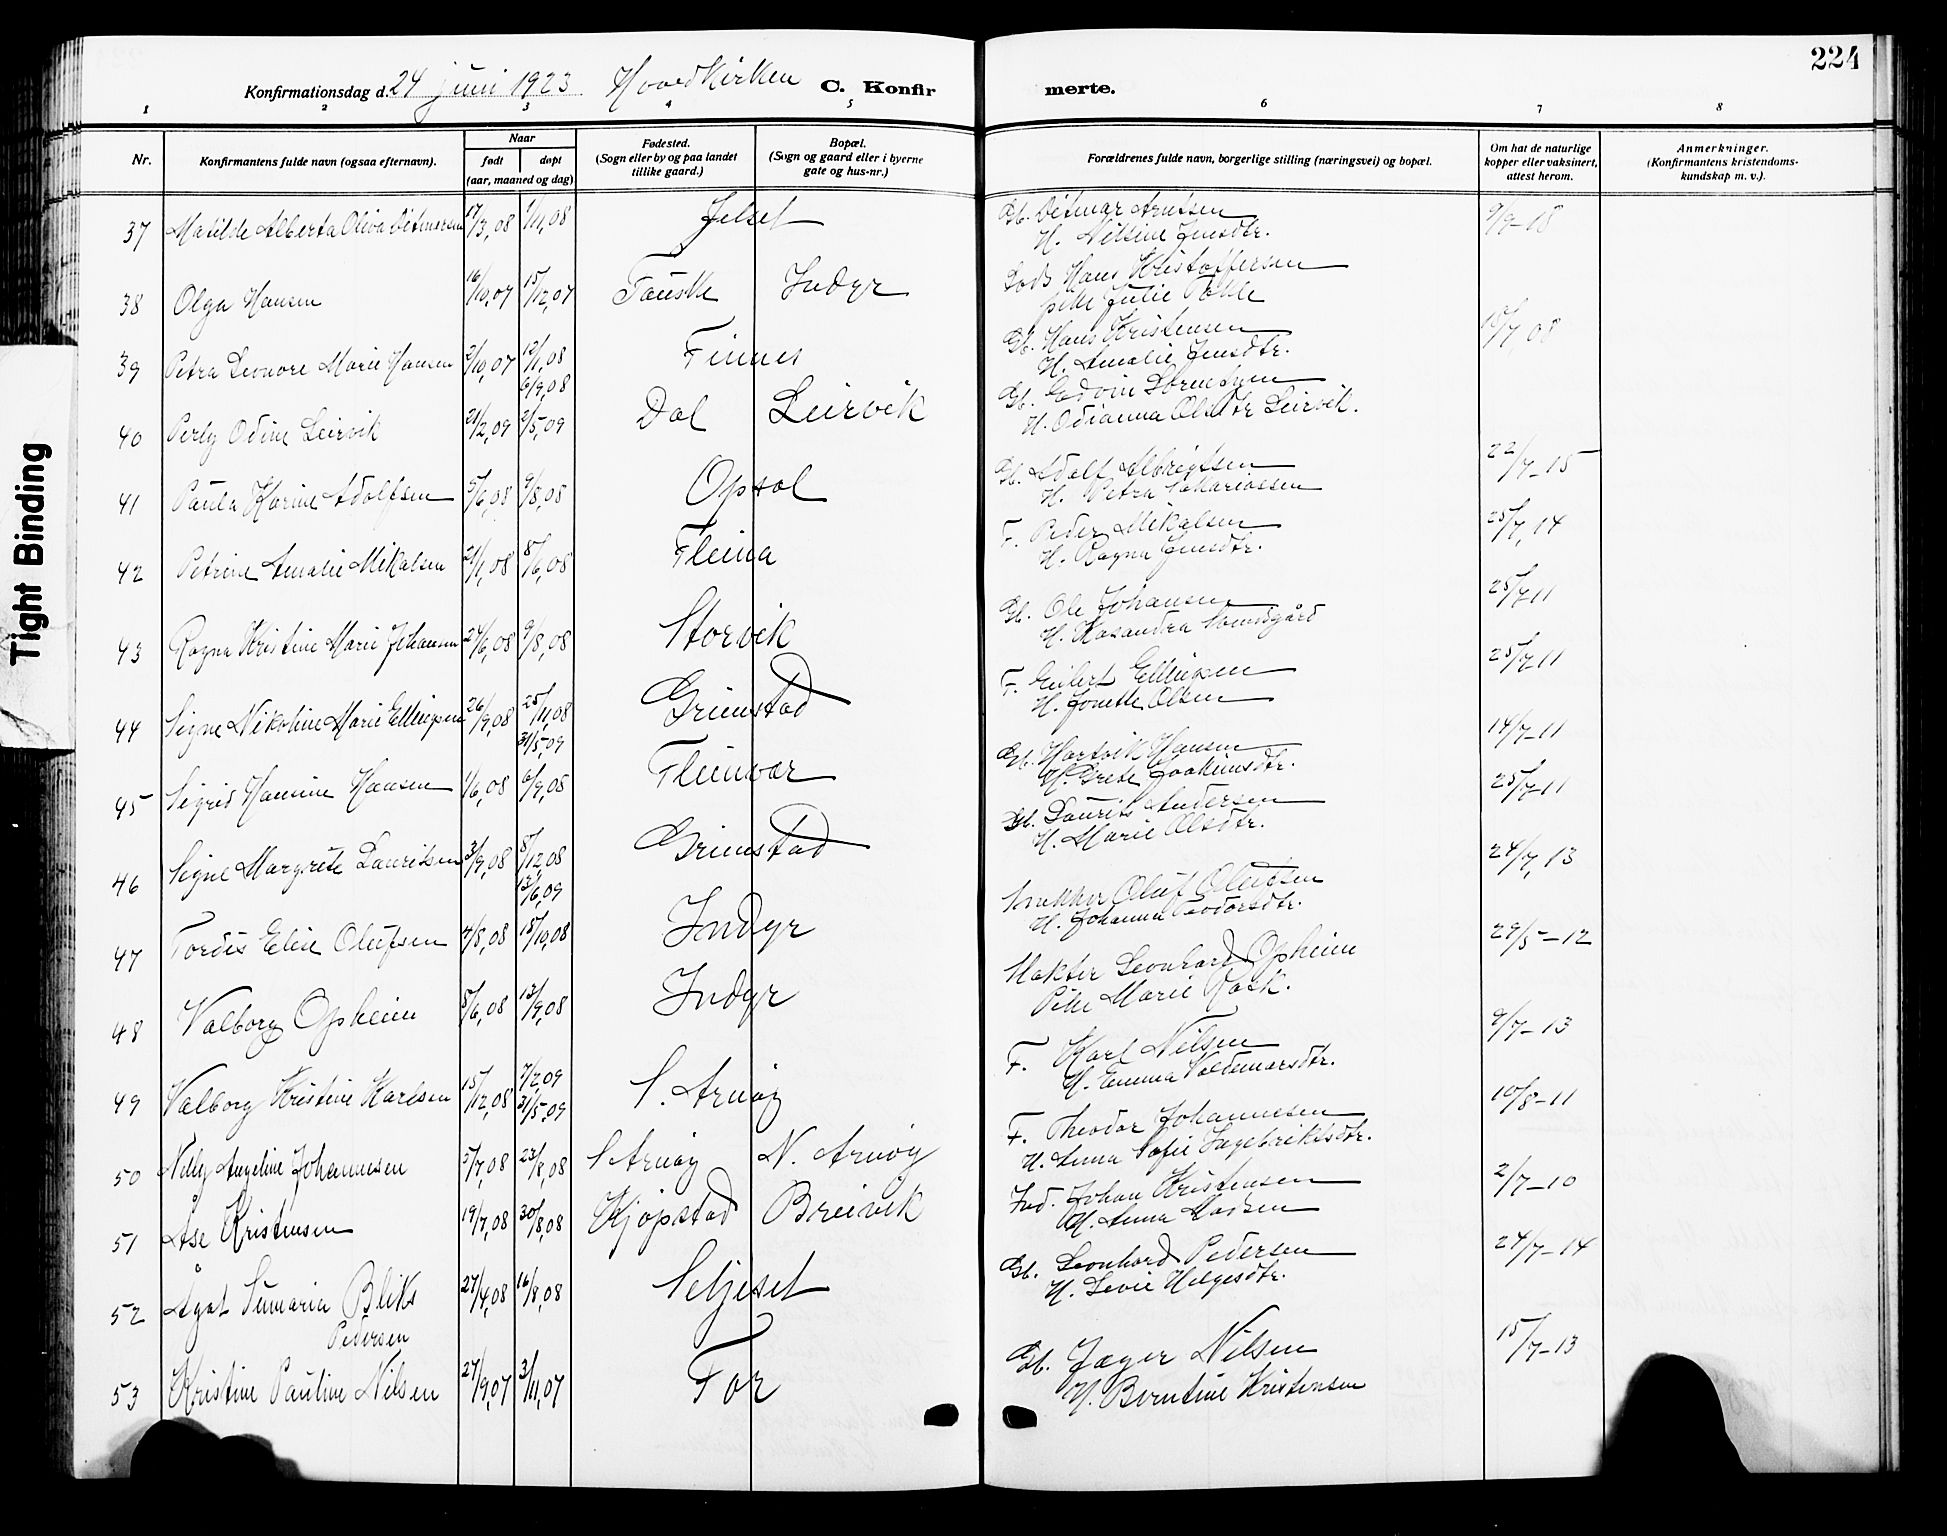 224
Konfirmationsdag d. 24 juni 1923 Hovedkirken C. Konfirmerte.
1 2 3 4 5 6 7 8
Nr.
Konfirmantens fulde navn (ogsaa efternavn).
Naar
født
døpt
(aar, maaned og dag)
Fødested.
(Sogn eller by og paa landet
tillike gaard.)
Bopæl.
(Sogn og gaard eller i byerne
gate og hus-nr.)
Forældrenes fulde navn, borgerlige stilling (næringsvei) og bopæl.
Om hat de naturlige
kopper eller vaksinert,
attest herom.
Anmerkninger.
(Konfirmantens kristendoms-
kundskap m. v.).
37 Matilde Alberta Oliva Ditmarsen 17/3,08 1/11,08 Jelset Gb. Ditmar Arntsen 9/9-18
H. Nilsine Jensdtr.
38 Olga Hansen 16/10,07 15/12,07 Fauske Indyr Lods Hans Kristoffersen
pike Julie
39 Petra Leonore Marie Hansen 2/10,07 12/1,08 Finnes Gb. Hans Kristensen 15/7,08
6/9,08 H. Amalie Jensdtr.
40 Perly Odine Leirvik 21/2,09 2/5,09 Dal Leirvik Gb. Edvin Sørensen
H. Odianna Olsdtr Leirvik.
41 Paula Karine Adolfsen 5/6,08 9/8,08 Opsal Gb. Adolf Albrigtsen 22/7-15
H. Petra Sakariassen
42 Petrine Amalie Mikalsen 21/1,08 8/6,08 Fleina F. Peder Mikalsen 25/7,14
H. Ragna Jensdtr.
43 Ragna Kristine Marie Johansen 24/6,08 9/8,08 Storvik Gb. Ole Johansen 25/7-11
H. Kasandra
44 Signe Nikoline Marie Ellingsen 26/9,08 25/11,08 Grimstad F. Eilert Ellingsen 25/7-11
31/5,09 H. Jonette Olsen
45 Sigrid Hansine Hansen 1/6,08 6/9,08 Fleinvar Gb. Hartvik Hansen 14/7-11
H. Grete Joakimsdtr.
46 Signe Margrete Lauritsen 3/9,08 8/12,08 Grimstad Gb. Laurits Andersen 25/7-11
13/6,09 H. Marie Olsdtr.
47 Tordis Elise Olufsen 4/8,08 18/10,08 Indyr Snekker Oluf Olufsen 24/7,13
H. Johanna Teodorsdtr.
48 Valborg Opheim 8/6,08 13/9,08 Indyr Vakter Leonhard Opheim 29/5-12
Pike Marie Rask.
49 Valborg Kristine Karlsen 15/12,08 7/2,09 S. Arnøy F. Karl Nilsen 9/7-13
31/5,09 H. Emma Valdemarsdtr.
50 Nelly Angeline Johannesen 5/7,08 23/8,08 S Arnøy N. Arnøy F. Theodor Johannesen 10/8-11
H. Anna Sofie Ingebriktsdtr.
51 Åse Kristensen 19/7,08 30/8,08 Kjøpstad Breivik Ind. Johan Kristensen 2/7-10
H. Anna Larsen
52 Ågot Sumaria Bliks 27/4,08 16/8,08 Seljeset Gb. Leonhard Pedersen 24/7-14
Pedersen H. Levie Helgesdtr.
53 Kristine Pauline Nilsen 27/9,07 3/11,07 Før Gb. Jæger Nilsen 15/7-13
H. Berntine Kristensen
Tight Binding